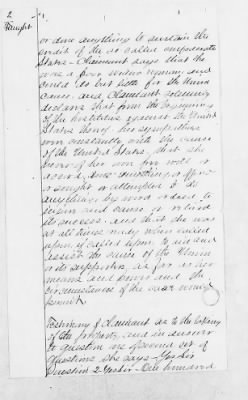 2
or done anything to sustain the
credit of the so called confederate
States - Claimant says that she
was a poor widow woman and
could do but little for the Union
cause - and Claimant solemnly
declares that from the beginning
of the hostilities against the United
States her sympathies
were constantly with the cause
of the United States, that she
never of her own free will &
accord, done anything, or offered
or sought or attempted to do
anything by word or deed to
injure said cause or retard
its success, and that she was
at all times ready when called
upon, if called upon to aid and
assist the cause of the Union
or its supporters, so far as her
means and power and the
circumstances of the case would
permit
Testimony of Claimant as to the
of the property, and in answer
to question see second set of
Questions she says - Yes Sir
Question 2 - Yes Sir - One hundred